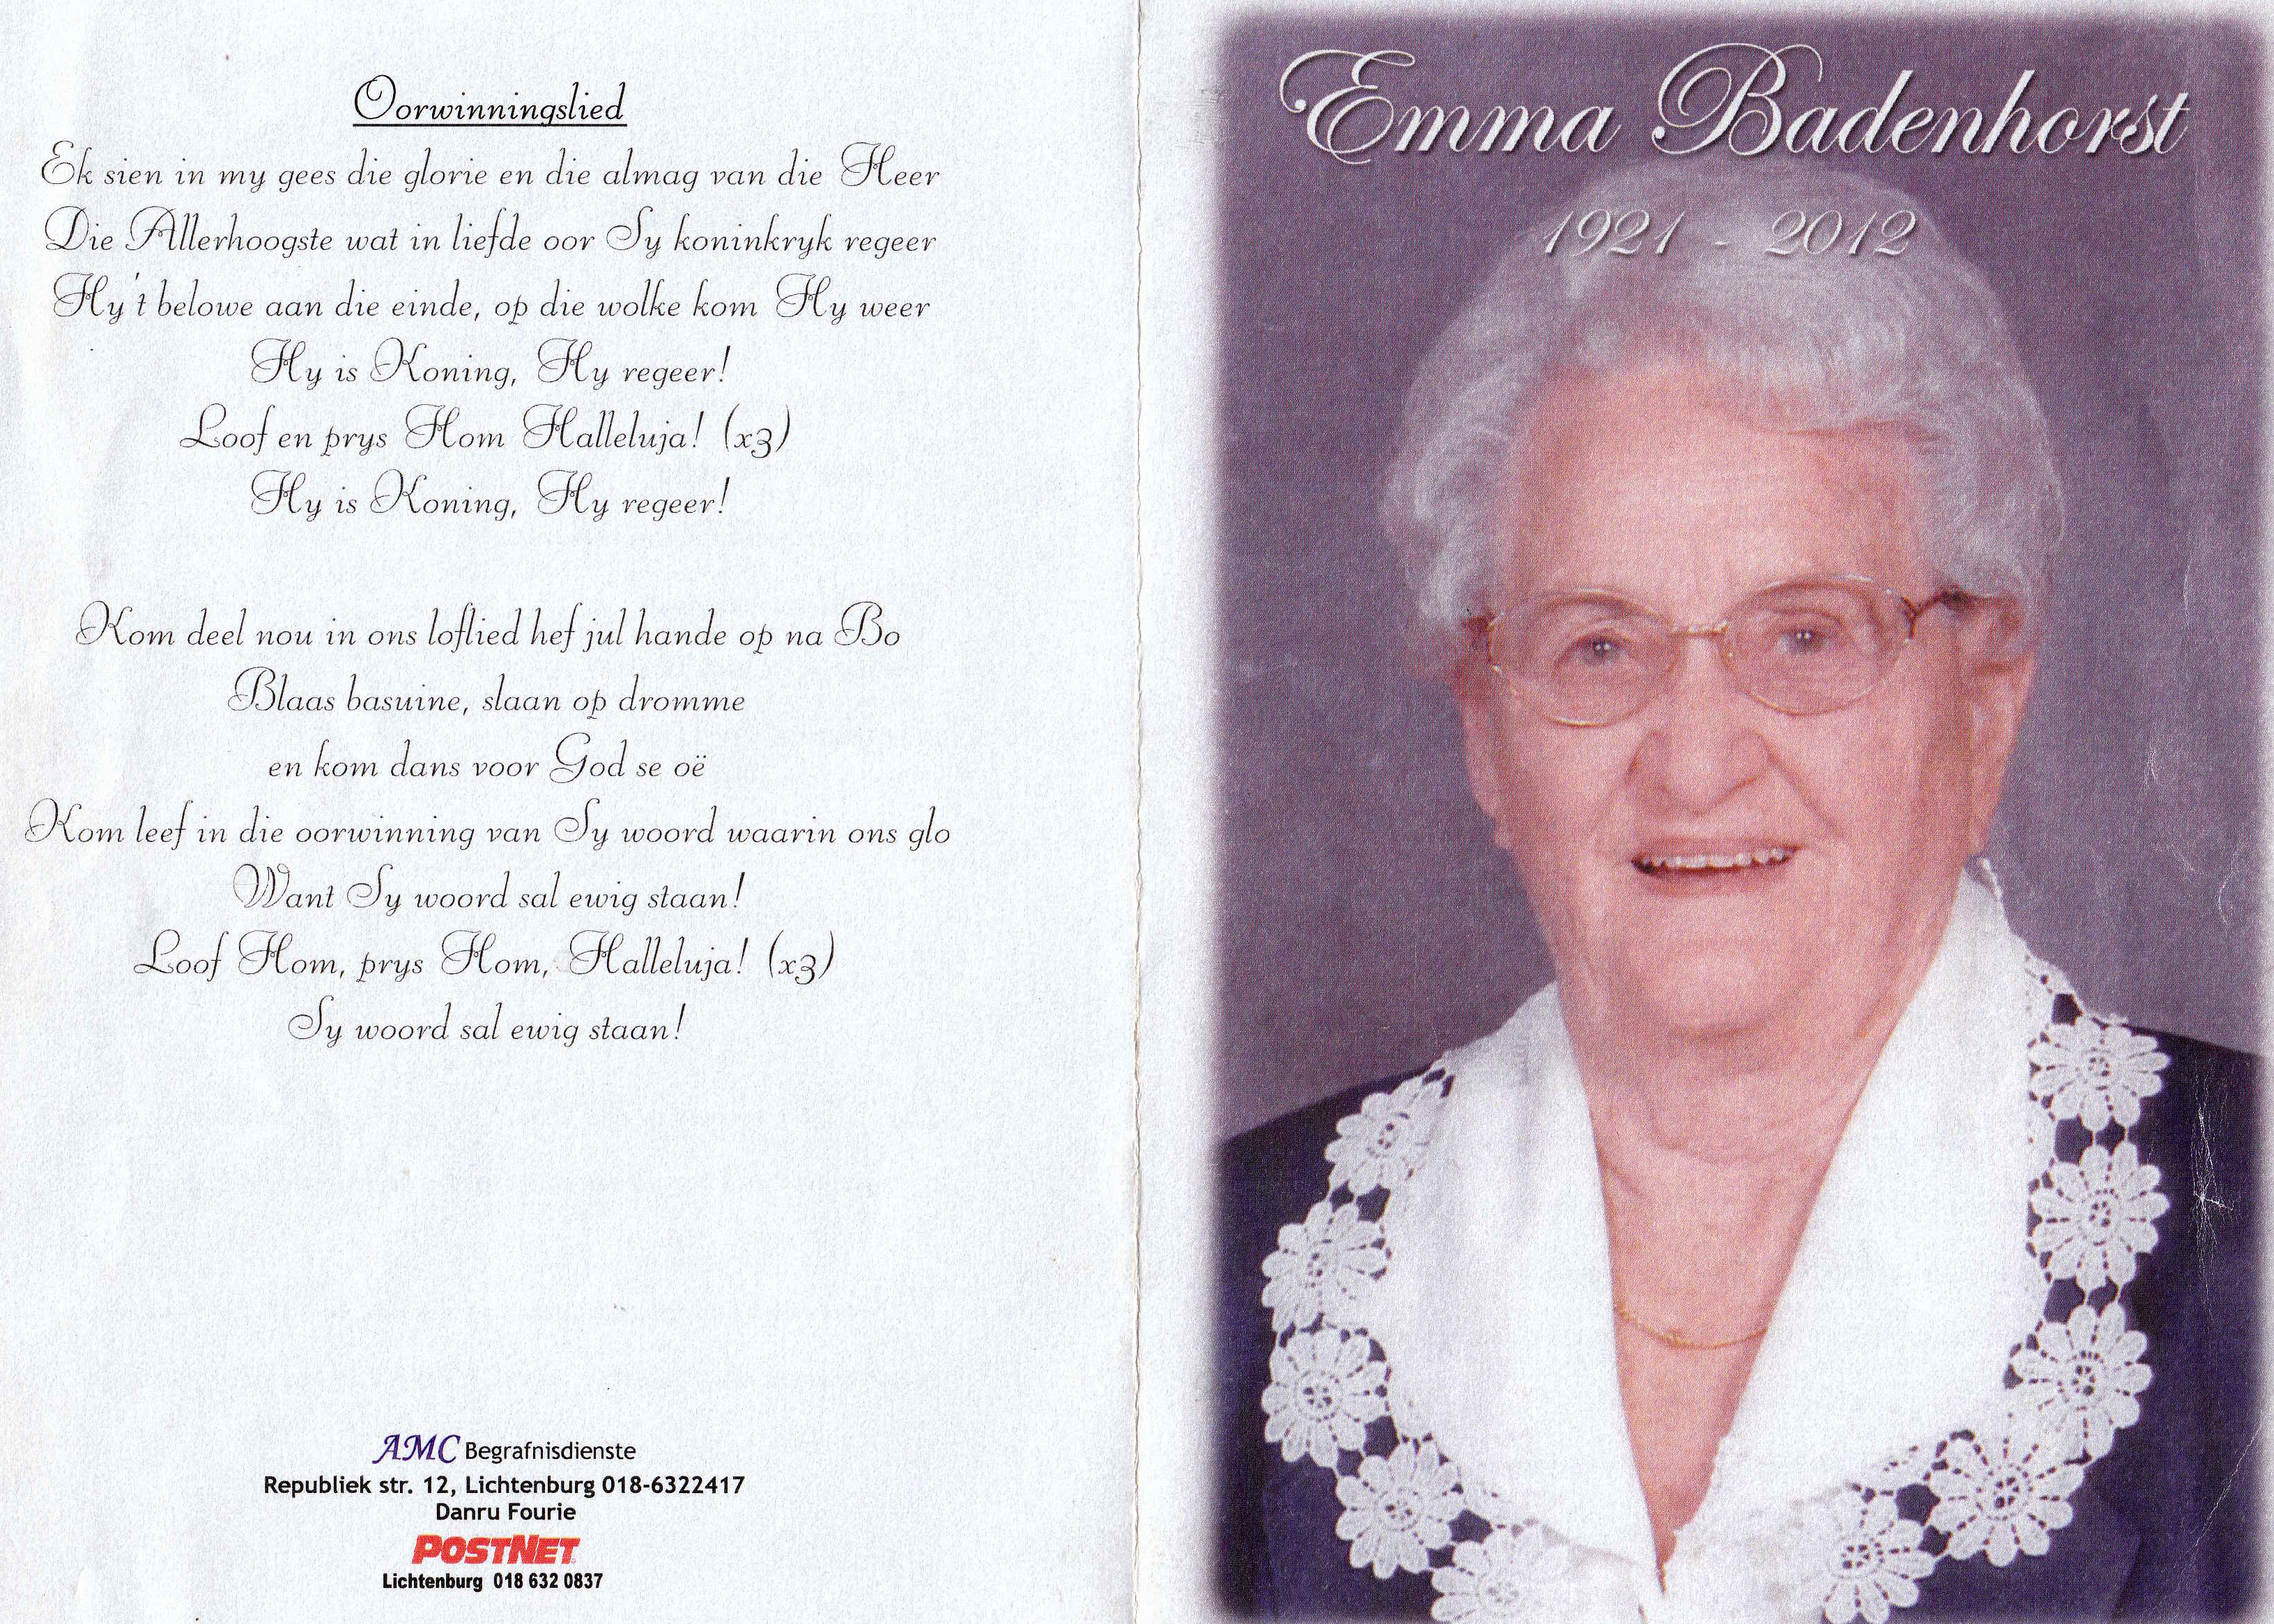 Oorwinningslied
Ek sien in my gees die glorie en die almag van die Heer
Die Allerhoogste wat in liefde oor Sy koninkryk regeer
Hy't belowe aan die einde, op die wolke kom Hy weer
Hy is Koning, Hy regeer!
Loof en prys Hom Halleluja! (x3)
Hy is Koning, Hy regeer!
Kom deel nou in ons loflied hef jul hande op na Bo
Blaas basuine, slaan op dromme
en kom dans voor God se oë
Kom leef in die oorwinning van Sy woord waarin ons glo
Want Sy woord sal ewig staan!
Loof Hom, prys Hom, Halleluja! (x3)
Sy woord sal ewig staan!
AMC Begrafnisdienste
Republiek str. 12, Lichtenburg 018-6322417
Danru Fourie
POSTNET
Lichtenburg 018 632 0837
Emma Badenhorst
1921 - 2012